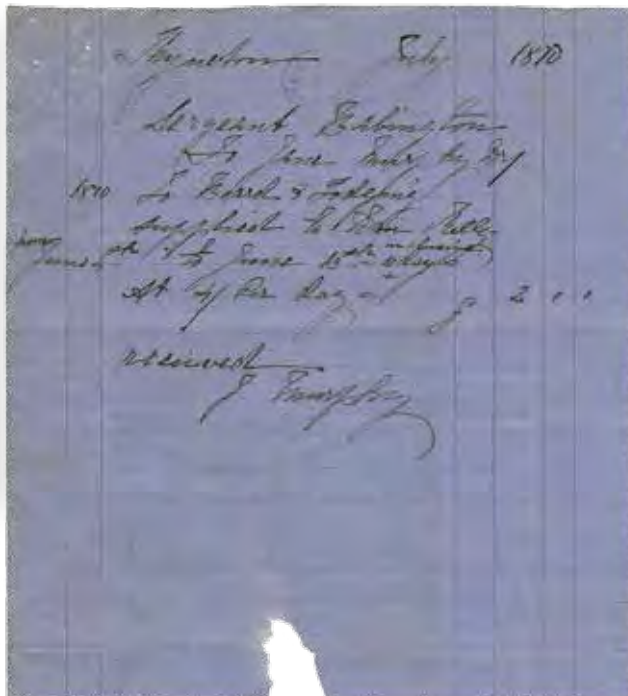 July 1870
Sergeant Babington
To Jane Murphy Dr
1870 To Board & Lodging
supplied to
from June to June 15th inclusive days
At 4/ Per Day £ 2 " "
received
J Murphy